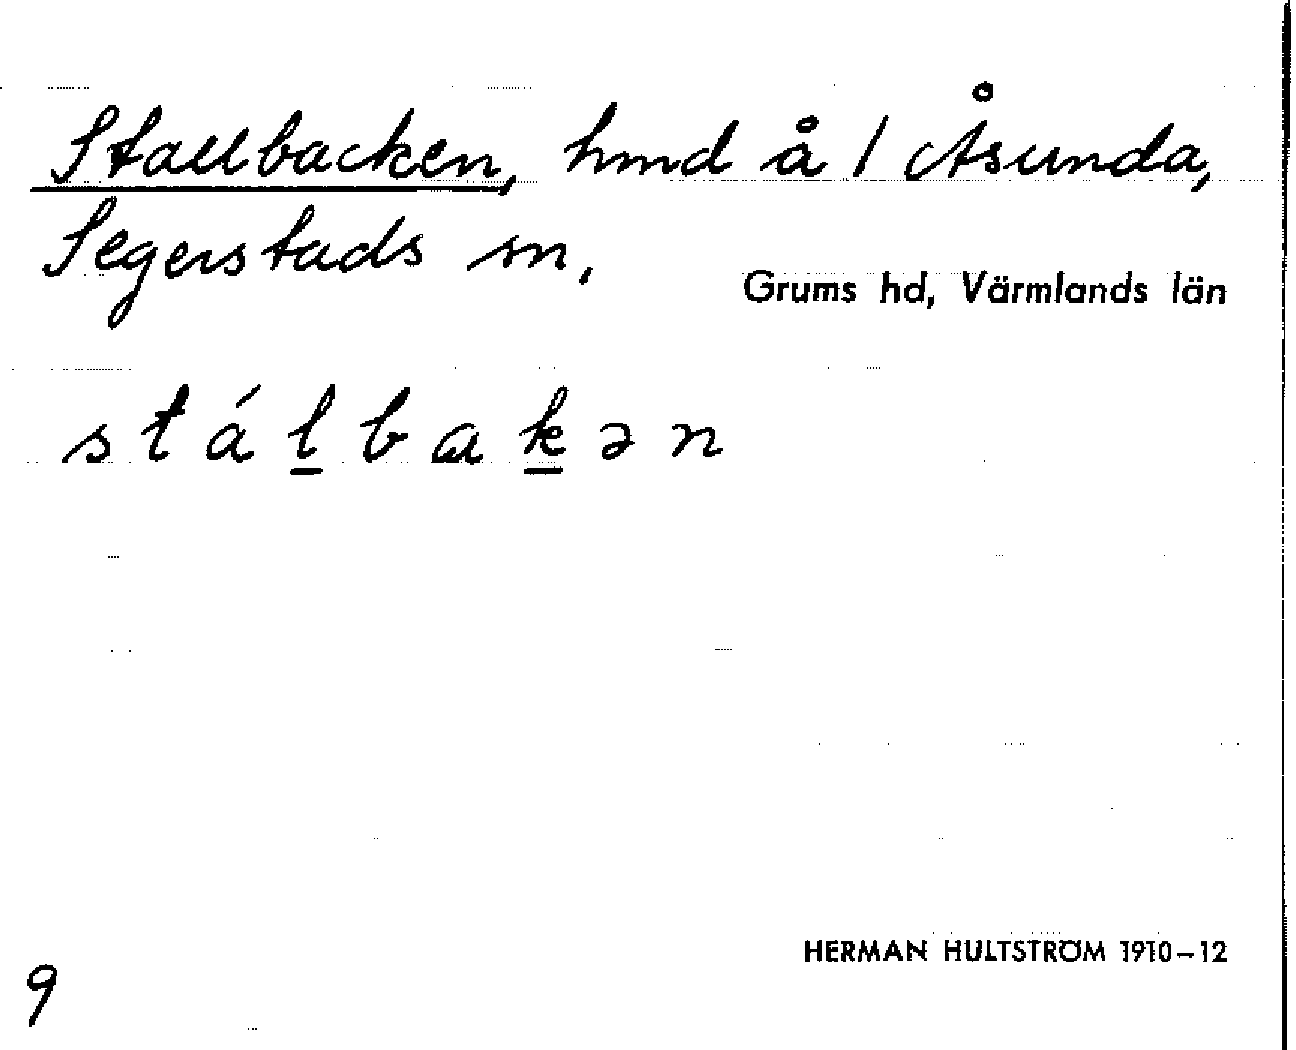 Stallbacken, hmd å / Åsunda,
Segerstads sn,
Grums hd, Värmlands län
stál̲bak̲ən
HERMAN HULTSTRÖM 1910–12
9